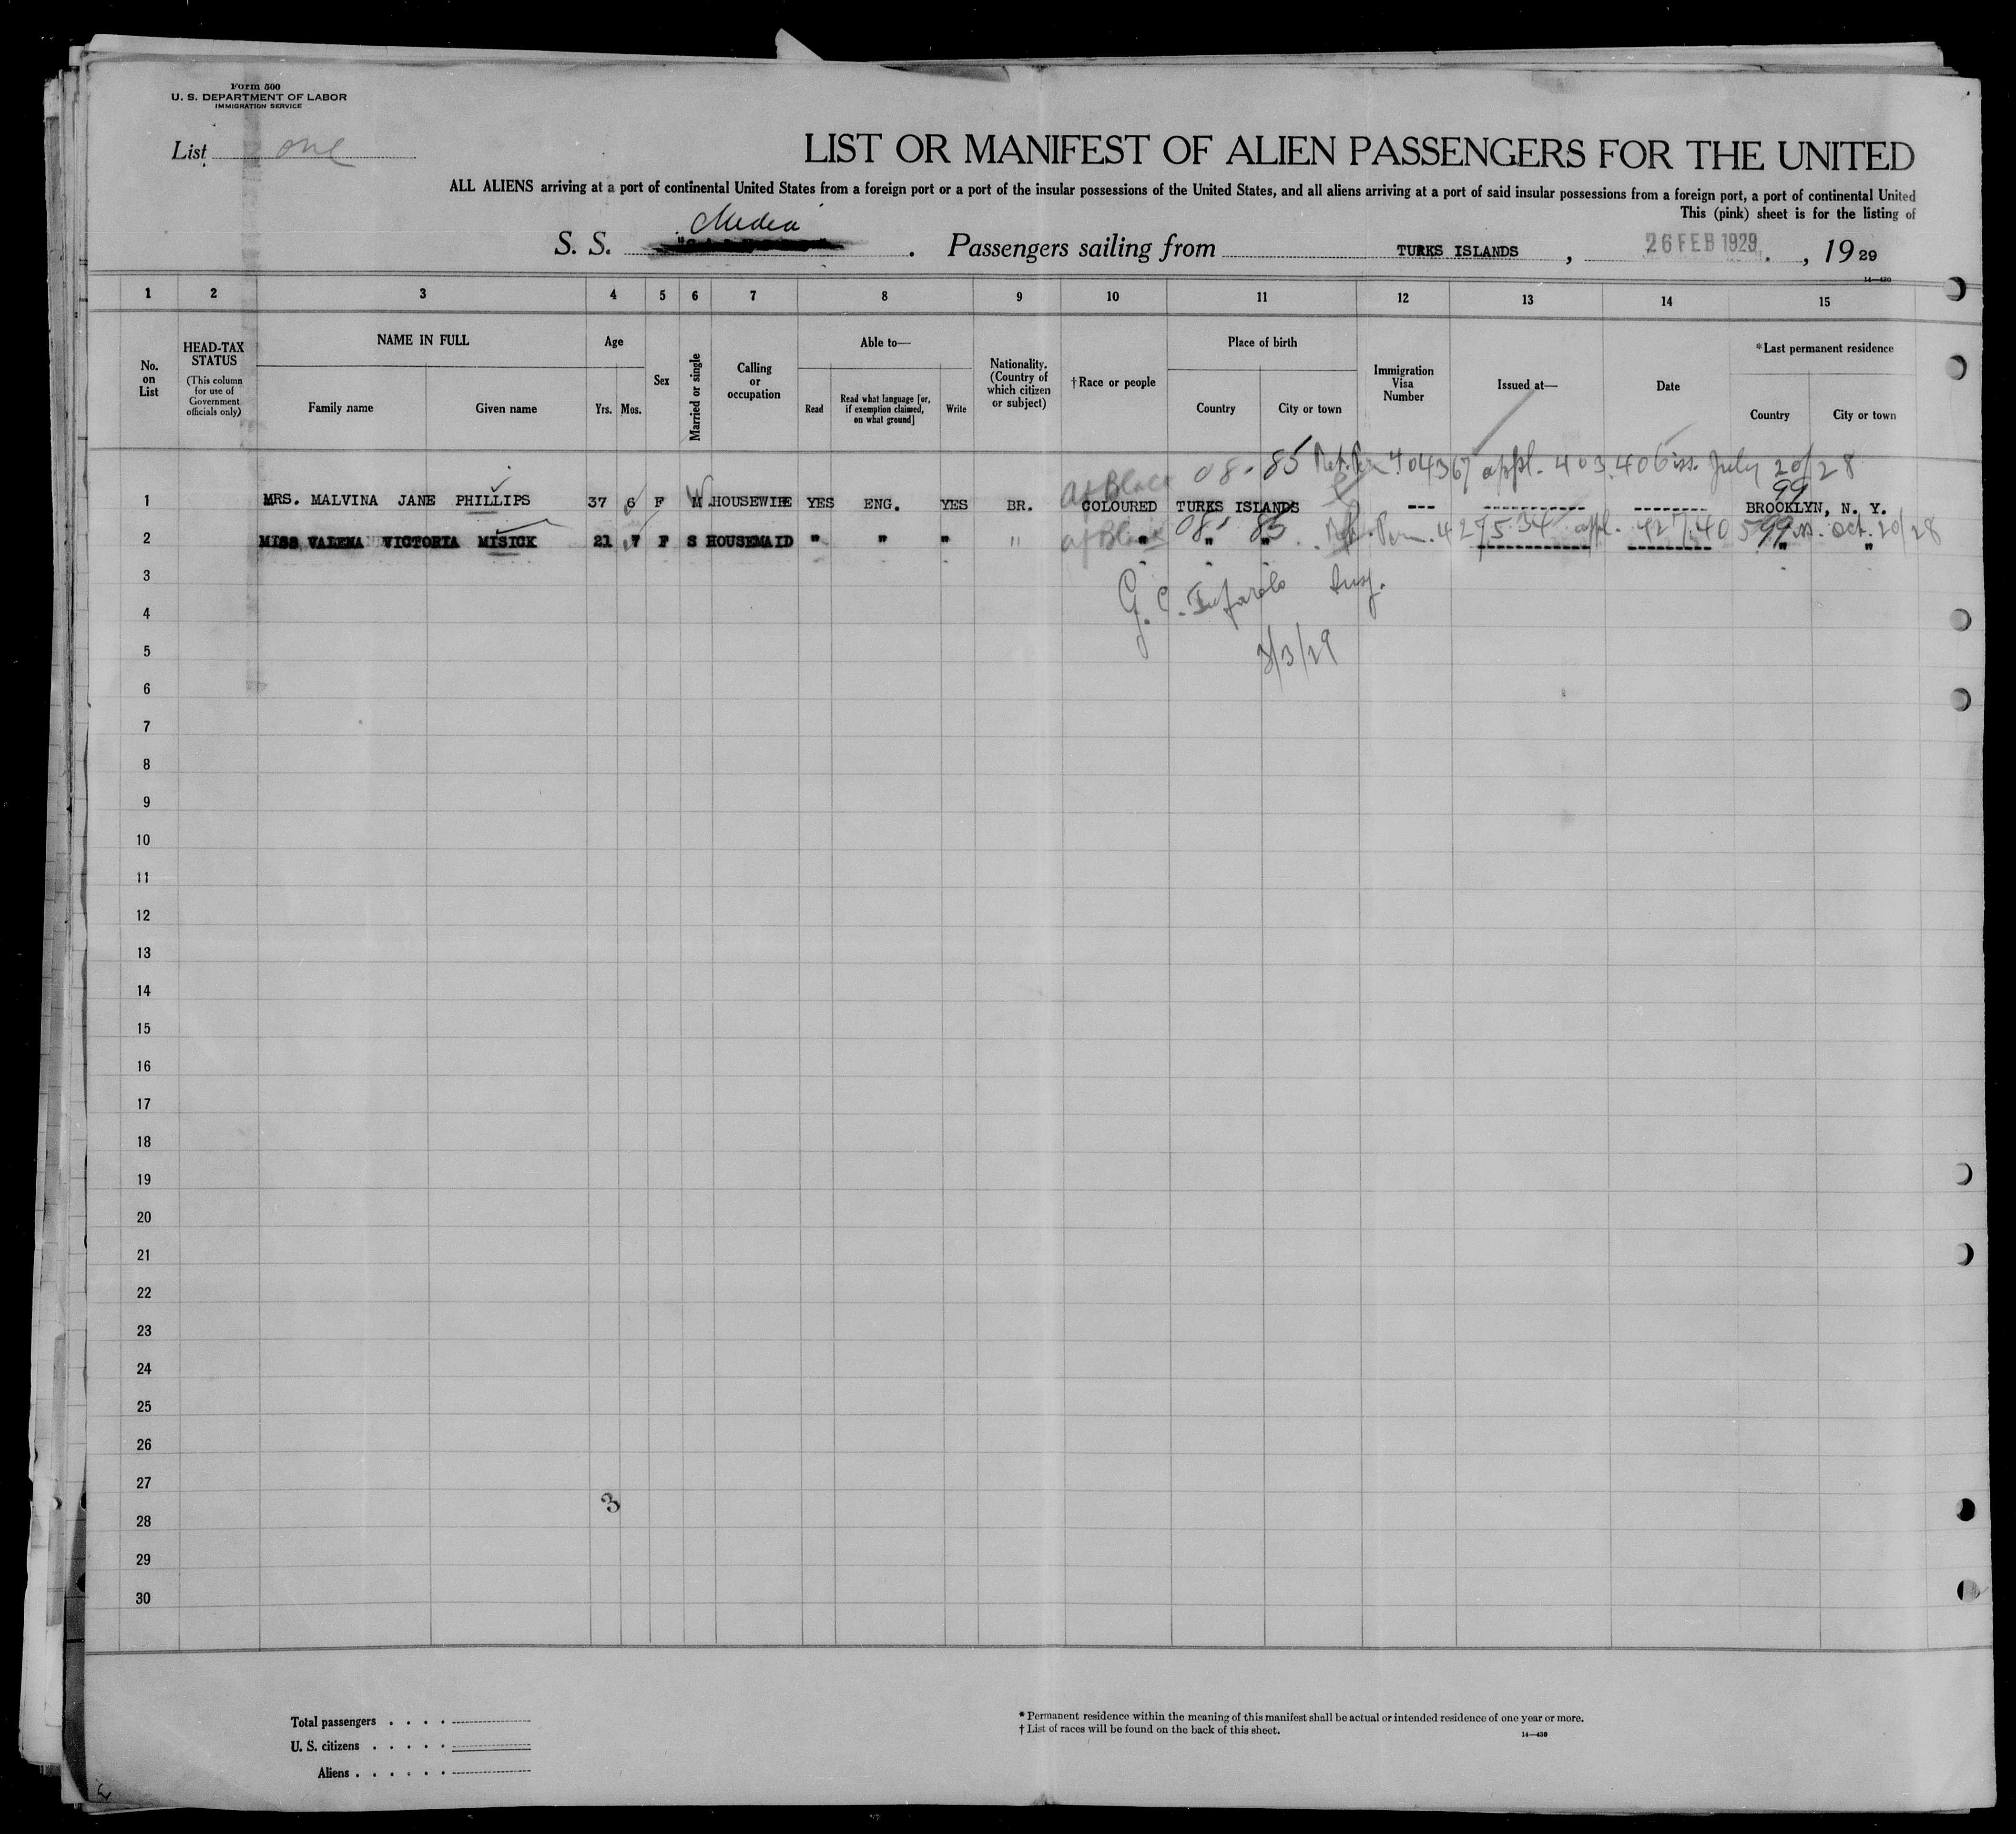 Form 500
U. S. DEPARTMENT OF LABOR
IMMIGRATION SERVICE
List one
LIST OR MANIFEST OF ALIEN PASSENGERS FOR THE UNITED
ALL ALIENS arriving at a port of continental United States from a foreign port or a port of the insular possessions of the United States, and all aliens arriving at a port of said insular possessions from a foreign port, a port of continental United
This (pink) sheet is for the listing of
Medea
S. S. . Passengers sailing from TURKS ISLANDS , 26 FEB 1929 , 19 29
14—430
1 2 3 4 5 6 7 8 9 10 11 12 13 14 15
No. on List
HEAD-TAX STATUS
(This column for use of Government officials only)
NAME IN FULL
Family name Given name
Age
Yrs. Mos.
Sex
Married or single
Calling or occupation
Able to—
Read Read what language [or, if exemption claimed, on what ground] Write
Nationality. (Country of which citizen or subject)
†Race or people
Place of birth
Country City or town
Immigration Visa Number
Issued at—
Date
*Last permanent residence
Country City or town
08-85 Ret. Per 404367 appl. 403406 iss. July 20/28
Af Black 99
1 MRS. MALVINA JANE PHILLIPS 37 6 F M HOUSEWIFE YES ENG. YES BR. COLOURED TURKS ISLANDS --- ----------- -------- BROOKLYN, N. Y.
08- 85 Per. 427534 appl. 427405 iss. Oct. 20/28
Af Black 99
2 MISS VALEMA VICTORIA MISICK 21 7 F S HOUSEMAID " " " " " " " ----------- --------- " "
3
G. C. Insp.
4
5 3/3/29
6
7
8
9
10
11
12
13
14
15
16
17
18
19
20
21
22
23
24
25
26
27
3
28
29
30
Total passengers . . . .
U. S. citizens . . . . .
Aliens . . . . . .
* Permanent residence within the meaning of this manifest shall be actual or intended residence of one year or more.
† List of races will be found on the back of this sheet.
14—430